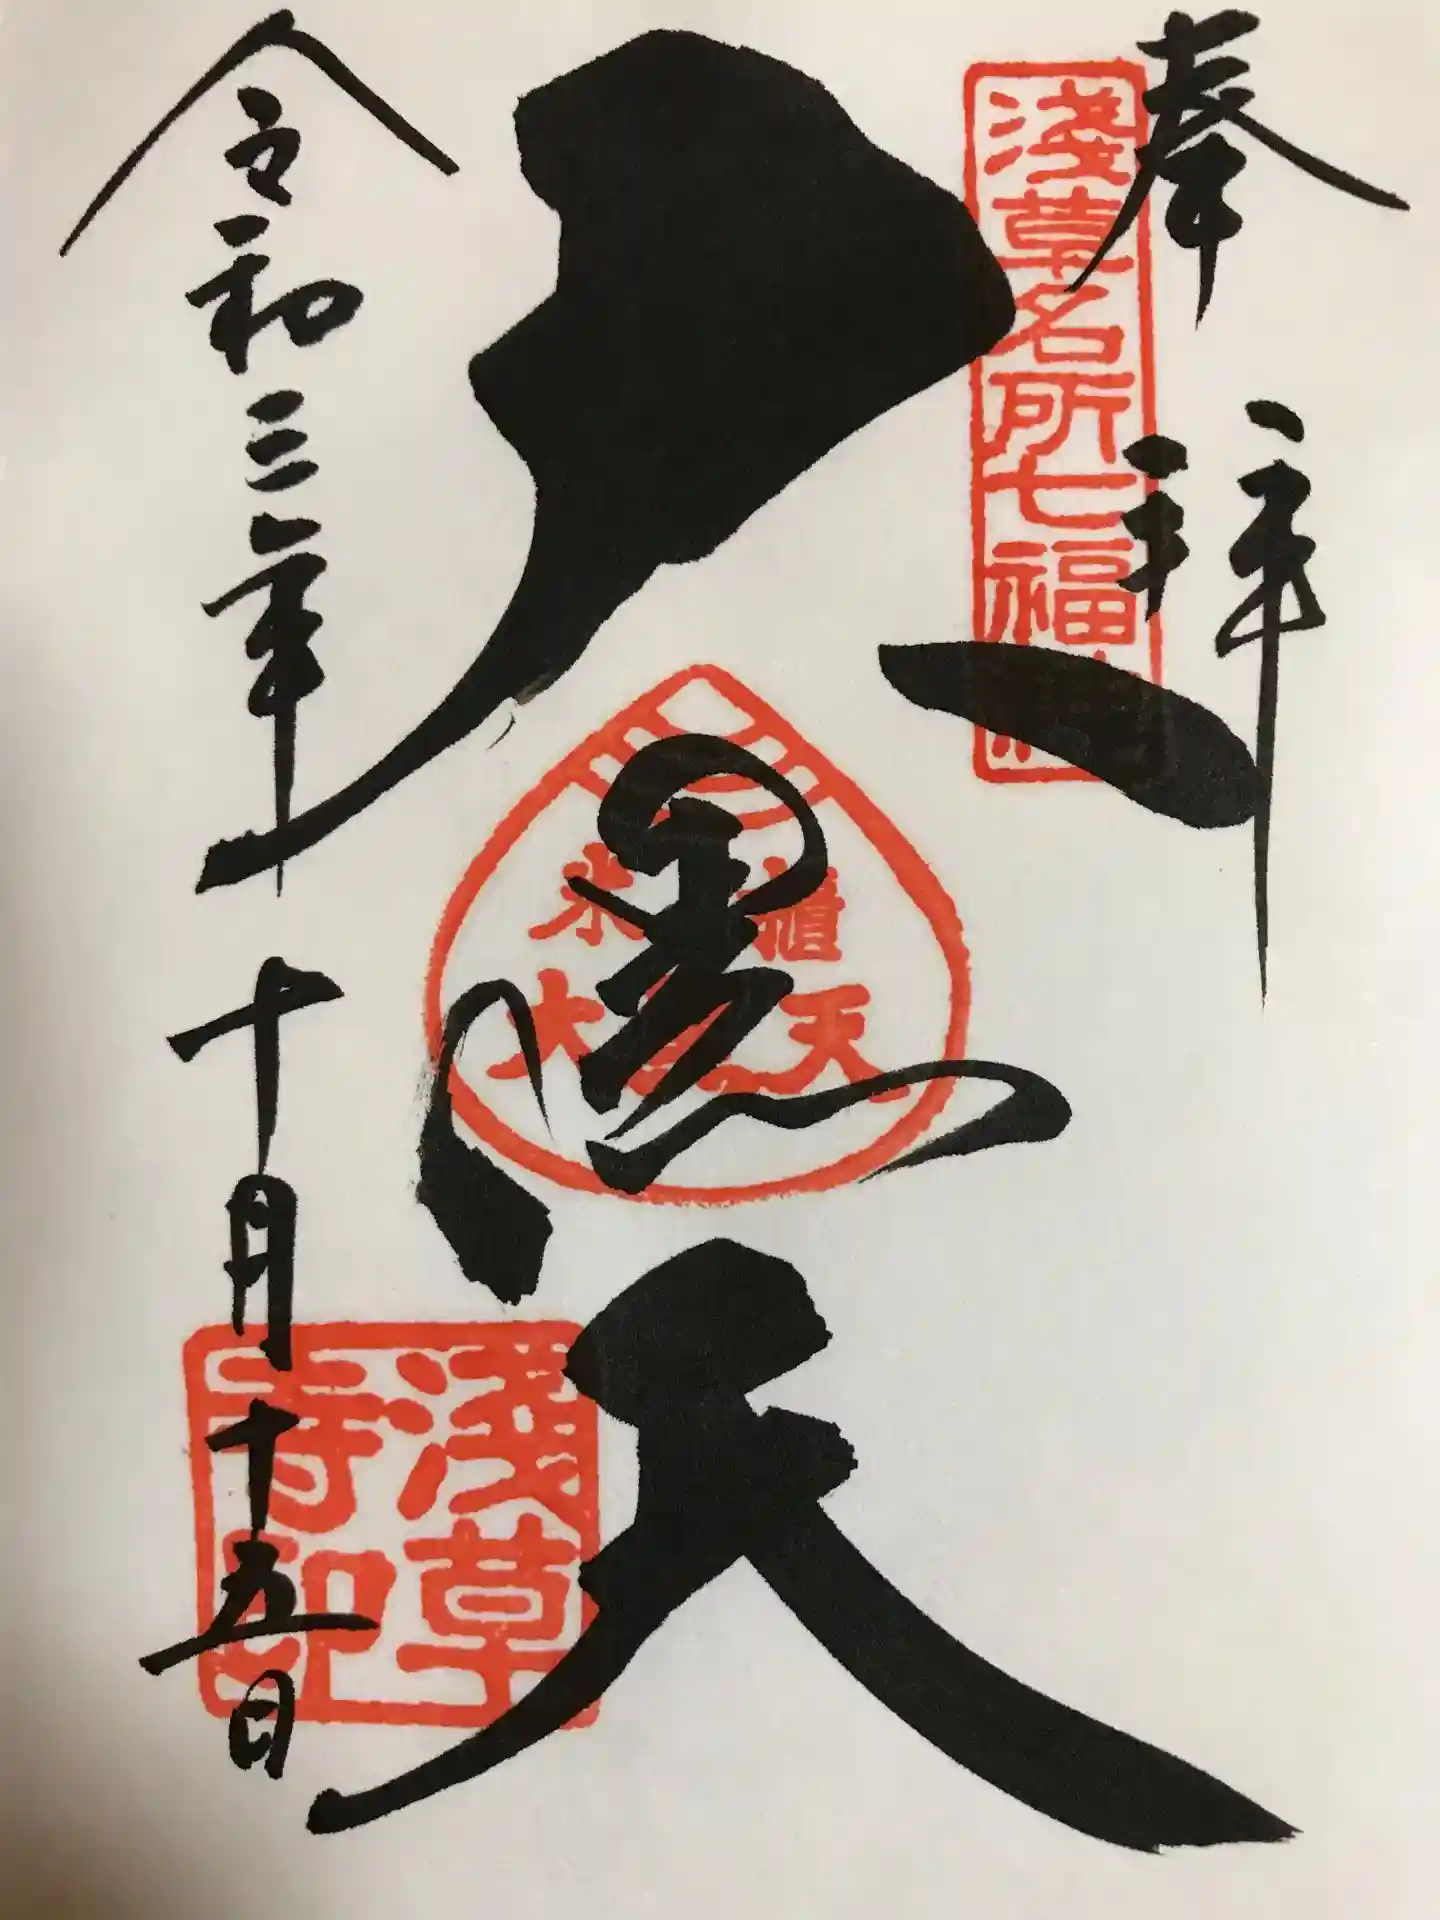 奉拝
浅草名所七福神
大黒天
米櫃
大黒天
令和三年十月十五日
浅草
寺印